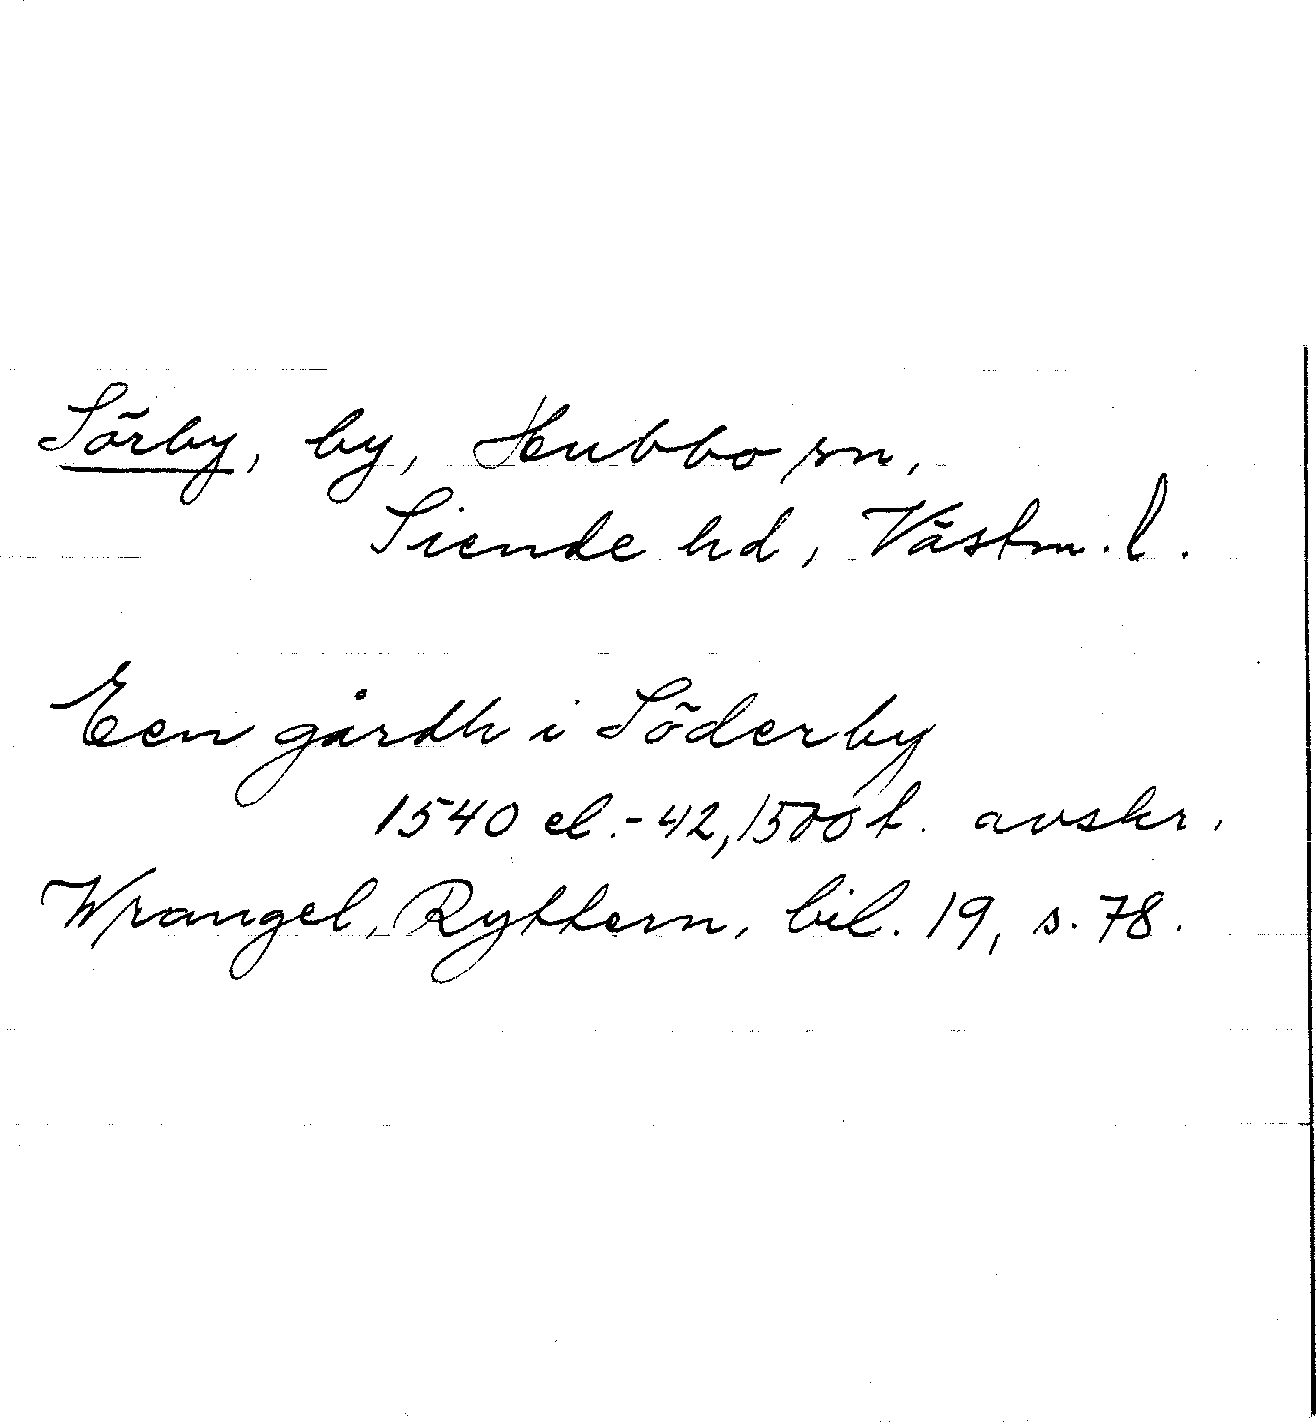 Sörby, by, Hubbo sn,
Siende hd, Västm. l.
Een gårdh i Söderby
1540 el. -42, 1500 t. avskr.
Wrangel, Ryttern, bil. 19, s. 78.